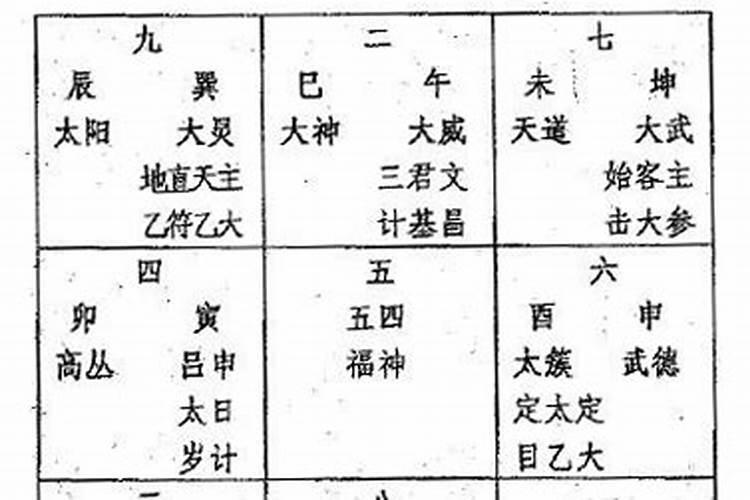 九
辰 巽
太阳 大炅
地直天主
乙符乙大
二
巳 午
大神 大威
三君文
计基昌
七
未 坤
天道 大武
始客主
击大参
四
卯 寅
高丛 吕申
太日
岁计
五
五四
福神
六
酉 申
太簇 武德
定太定
目乙大
八